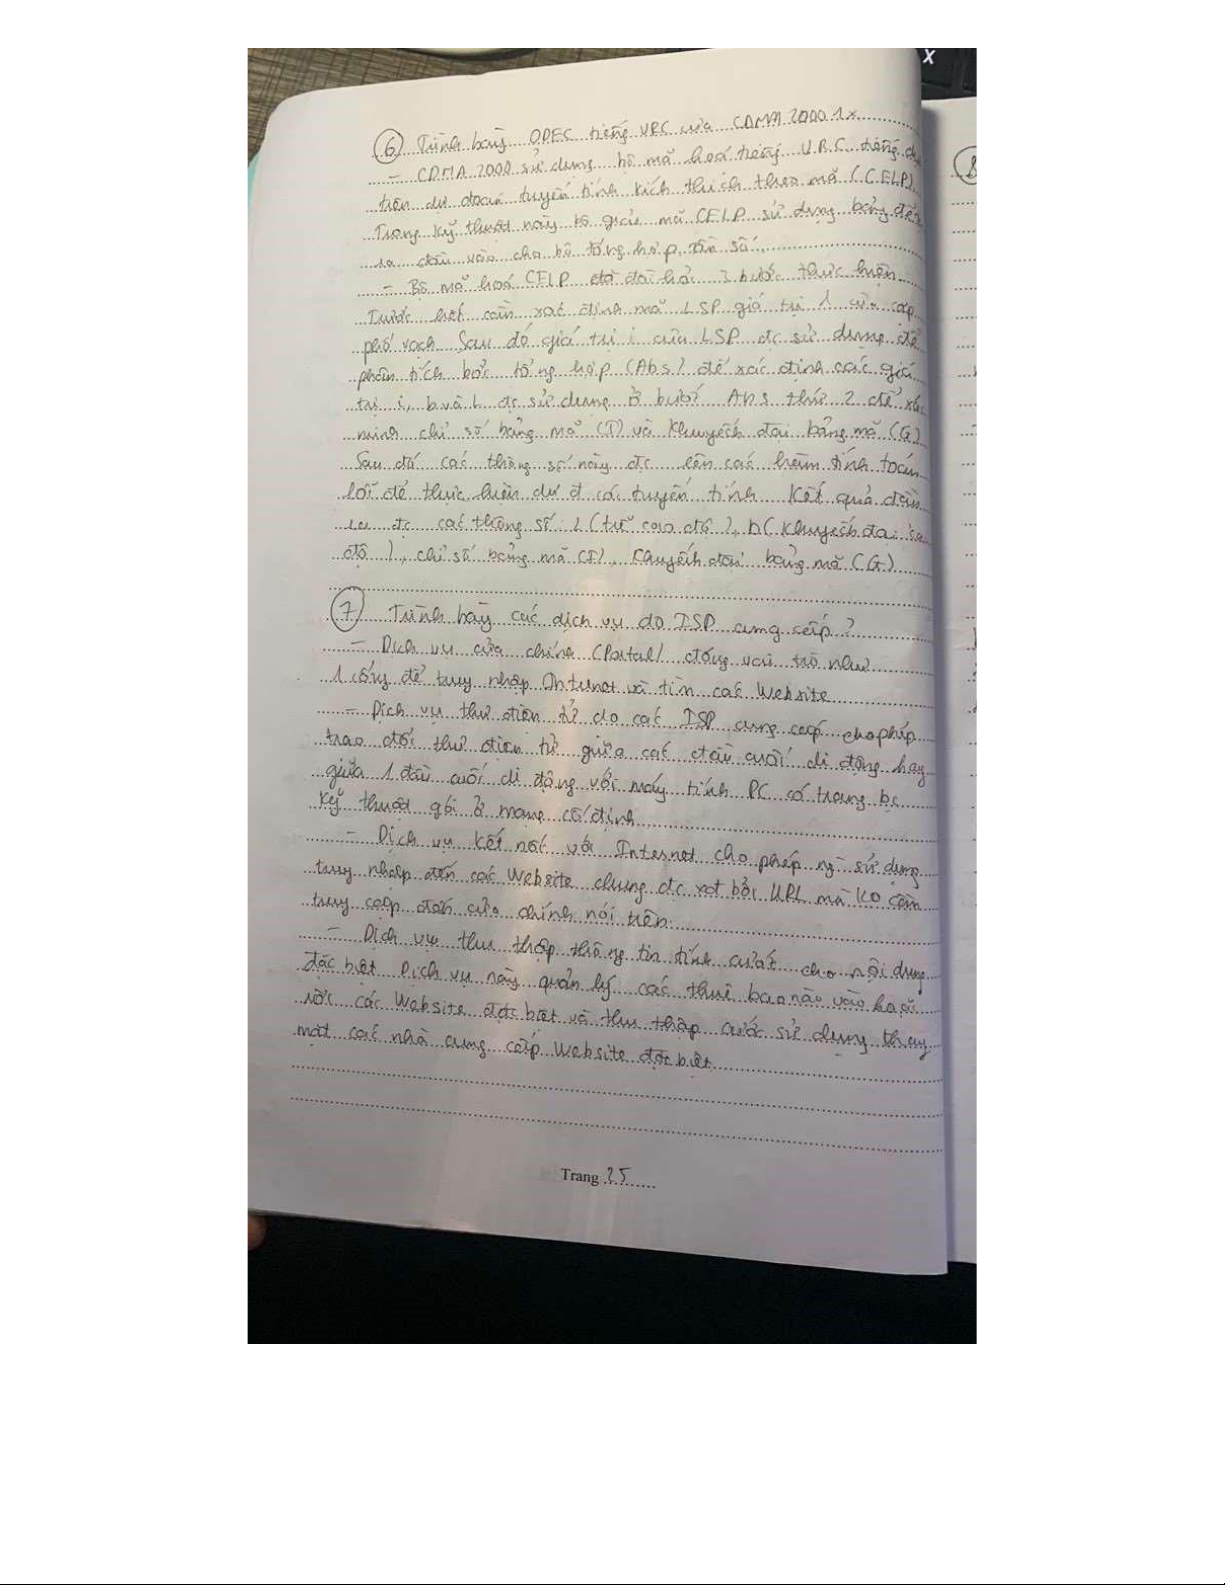 ⑥ Trình bày CODEC tiếng VRC của CDMA 2000 1x
- CDMA 2000 sử dụng bộ mã hoá tiếng V.R.C. tiếng
trên dự đoán tuyến tính kích thích theo mã (CELP).
Trong kỹ thuật này bộ giải mã CELP sử dụng bảng để
ra đầu vào cho bộ tổng hợp tần số.
- Bộ mã hoá CELP đòi hỏi 3 bước thực hiện.
Trước hết cần xác định mã LSP giá trị 1 của cặp
phổ vạch Sau đó giá trị i của LSP đc sử dụng để
phân tích bởi tổng hợp (Abs) để xác định các giá
trị i, b và L đc sử dụng ở bước Abs thứ 2 để xác
minh chỉ số bảng mã (I) và khuyếch đại bảng mã (G)
Sau đó các thông số này đc các hàm tính toán
lỗi để thực hiện dự đ tuyến tính Kết quả đầu
ra đc các thông số: L (từ cao độ), b (khuyếch đại cao
độ), chỉ số bảng mã (I), khuyếch đại bảng mã (G)
⑦ Trình bày các dịch vụ do ISP cung cấp?
- Dịch vụ cửa chính (Portal) đóng vai trò như
1 cổng để truy nhập Internet và tìm các Website
- Dịch vụ thư điện tử do các ISP cung cấp cho phép
trao đổi thư điện tử giữa các đầu cuối di động hay
giữa 1 đầu cuối di động với máy tính PC có trang bị
kỹ thuật gói ở mạng cố định
- Dịch vụ kết nối với Internet cho phép ng sử dụng
truy nhập đến các Website chung đc bởi URL mà ko cần
truy cập đến cửa chính nói trên.
- Dịch vụ thu thập thông tin tính cước cho nội dung
đặc biệt Dịch vụ này quản lý các thuê bao nào vào hoặc
rời các Website đặc biệt và thu thập cước sử dụng thay
mặt các nhà cung cấp Website đặc biệt
Trang 25
8
X